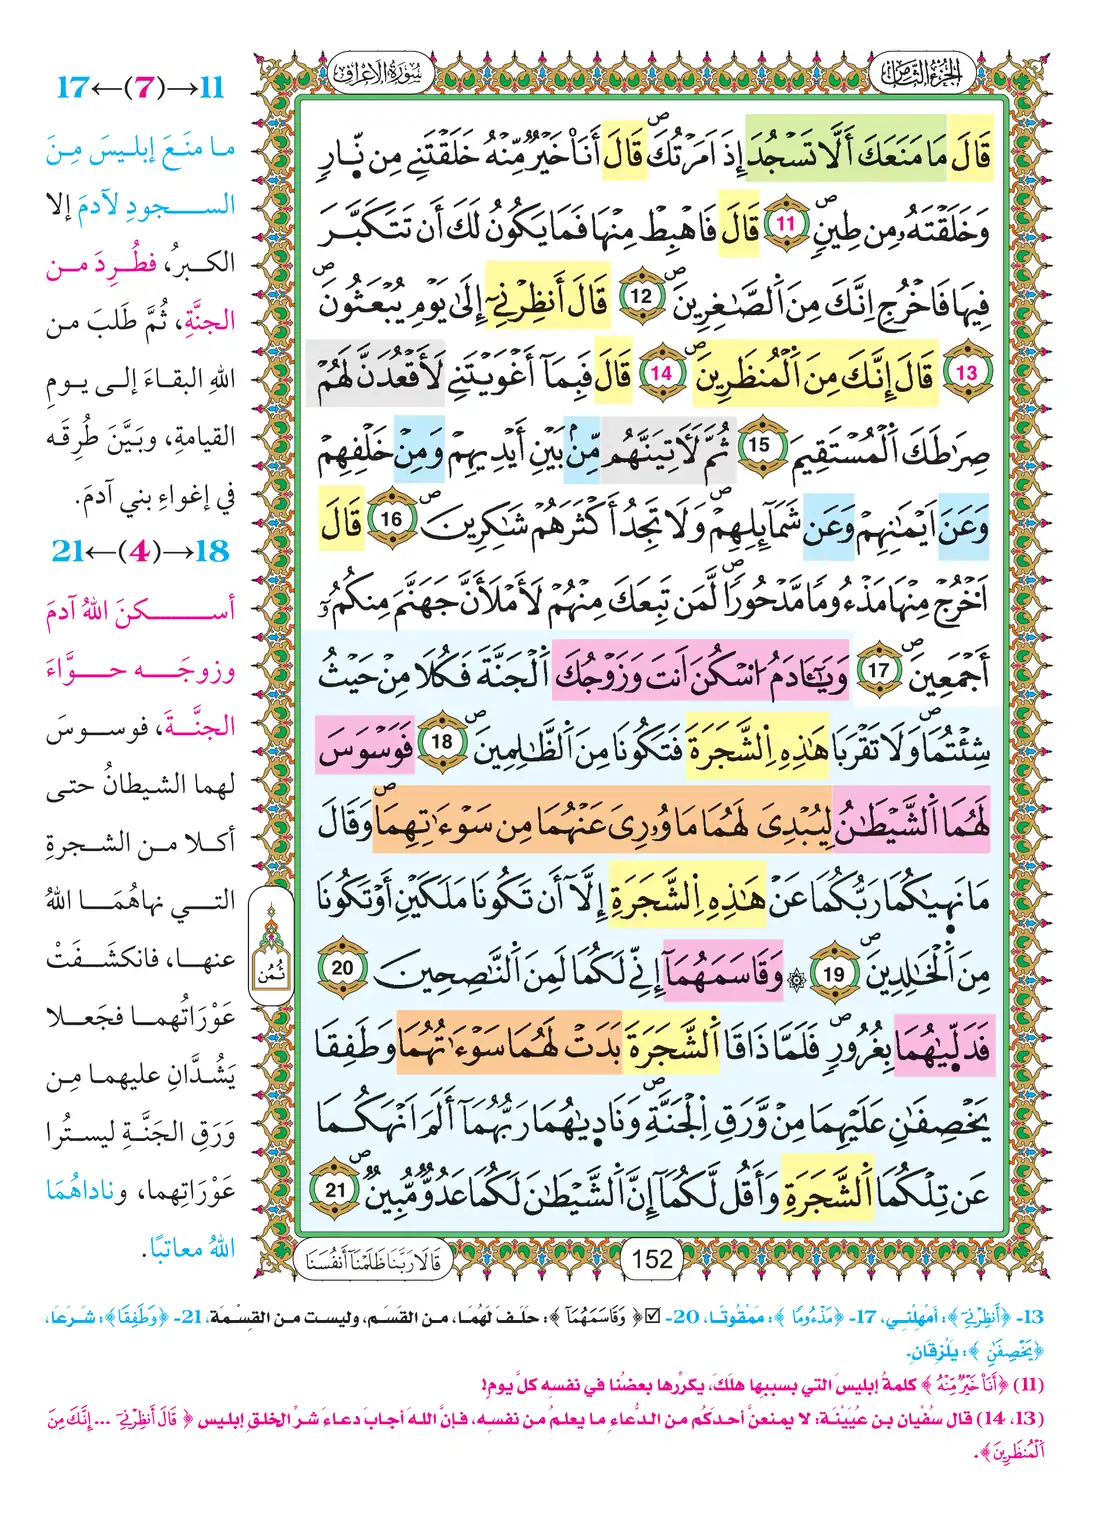 الجزء الثامن
سورة الاعراف
قَالَ مَا مَنَعَكَ أَلَّا تَسْجُدَ إِذَ اَمَرْتُكَۖ قَالَ أَنَا۠ خَيْرٞ مِّنْهُ خَلَقْتَنِے مِن نّ۪ارٖ
وَخَلَقْتَهُۥ مِن طِينٖۖ 11 قَالَ فَاهْبِطْ مِنْهَا فَمَا يَكُونُ لَكَ أَن تَتَكَبَّرَ
فِيهَا فَاخْرُجِ اِنَّكَ مِنَ اَ۬لصَّٰغِرِينَۖ 12 قَالَ أَنظِرْنِےٓ إِلَىٰ يَوْمِ يُبْعَثُونَۖ
13 قَالَ إِنَّكَ مِنَ اَ۬لْمُنظَرِينَۖ 14 قَالَ فَبِمَآ أَغْوَيْتَنِے لَأَقْعُدَنَّ لَهُمْ
صِرَٰطَكَ اَ۬لْمُسْتَقِيمَ 15 ثُمَّ لَأٓتِيَنَّهُم مِّنۢ بَيْنِ أَيْدِيهِمْ وَمِنْ خَلْفِهِمْ
وَعَنَ اَيْمَٰنِهِمْ وَعَن شَمَآئِلِهِمْۖ وَلَا تَجِدُ أَكْثَرَهُمْ شَٰكِرِينَۖ 16 قَالَ
اَ۟خْرُجْ مِنْهَا مَذْءُوماٗ مَّدْحُوراٗۖ لَّمَن تَبِعَكَ مِنْهُمْ لَأَمْلَأَنَّ جَهَنَّمَ مِنكُمُۥٓ
أَجْمَعِينَۖ 17 وَيَٰٓـَٔادَمُ اُ۟سْكُنَ اَنتَ وَزَوْجُكَ اَ۬لْجَنَّةَ فَكُلَا مِنْ حَيْثُ
شِئْتُمَاۖ وَلَا تَقْرَبَا هَٰذِهِ اِ۬لشَّجَرَةَ فَتَكُونَا مِنَ اَ۬لظَّٰلِمِينَۖ 18 فَوَسْوَسَ
لَهُمَا اَ۬لشَّيْطَٰنُ لِيُبْدِيَ لَهُمَا مَا وُۥرِيَ عَنْهُمَا مِن سَوْءَٰتِهِمَاۖ وَقَالَ
مَا نَه۪يٰكُمَا رَبُّكُمَا عَنْ هَٰذِهِ اِ۬لشَّجَرَةِ إِلَّآ أَن تَكُونَا مَلَكَيْنِ أَوْ تَكُونَا
مِنَ اَ۬لْخَٰلِدِينَۖ 19 ۞ وَقَاسَمَهُمَآ إِنِّے لَكُمَا لَمِنَ اَ۬لنَّٰصِحِينَ 20
فَدَلّ۪يٰهُمَا بِغُرُورٖۖ فَلَمَّا ذَاقَا اَ۬لشَّجَرَةَ بَدَتْ لَهُمَا سَوْءَٰتُهُمَا وَطَفِقَا
يَخْصِفَٰنِ عَلَيْهِمَا مِنْ وَّرَقِ اِ۬لْجَنَّةِۖ وَنَاد۪يٰهُمَا رَبُّهُمَآ أَلَمَ اَنْهَكُمَا
عَن تِلْكُمَا اَ۬لشَّجَرَةِ وَأَقُل لَّكُمَآ إِنَّ اَ۬لشَّيْطَٰنَ لَكُمَا عَدُوّٞ مُّبِينٞۖ 21
ثُمُن
152
قَالَا رَبَّنَا ظَلَمْنَآ أَنفُسَنَا
11→(7)←17
ما منَعَ إبليسَ مِنَ
السجودِ لآدمَ إلا
الكبرُ، فطُرِدَ من
الجنَّةِ، ثُمَّ طَلَبَ من
اللهِ البقاءَ إلى يومِ
القيامةِ، وبَيَّنَ طُرِقَه
في إغواءِ بني آدمَ.
18→(4)←21
أسكنَ اللهُ آدمَ
وزوجَه حوَّاءَ
الجنَّةَ، فوسوسَ
لهما الشيطانُ حتى
أكلا من الشجرةِ
التي نهاهُمَا اللهُ
عنها، فانكشَفَتْ
عوْرَاتُهما فجَعلا
يَشُدَّانِ عليهما مِن
وَرَقِ الجَنَّةِ ليستُرا
عوْرَاتِهما، وناداهُمَا
اللهُ معاتبًا.
13- ﴿أَنظِرْنِےٓ﴾: أمْهِلْنِي، 17- ﴿مَذْءُومًا﴾: مَمْقُوتًا، 20- ☑﴿وَقَاسَمَهُمَآ﴾: حَلَفَ لَهُمَا، من القَسَمِ، وليست من القِسْمة، 21- ﴿وَطَفِقَا﴾: شَرَعَا،
﴿يَخْصِفَٰنِ﴾: يَلْزِقَانِ.
(11) ﴿أَنَا۠ خَيْرٞ مِّنْهُ﴾ كلمةُ إبليسَ التي بسببِها هلَكَ، يكرِّرها بعضُنا في نفسه كلَّ يومٍ!
(13، 14) قال سُفْيان بن عُيَيْنَة: لا يمنعنَّ أحدَكُم من الدُّعاءِ ما يعلمُ من نفسِه، فإنَّ اللهَ أجابَ دعاءَ شرِّ الخلقِ إبليس ﴿قَالَ أَنظِرْنِےٓ ... إِنَّكَ مِنَ
اَ۬لْمُنظَرِينَ﴾.